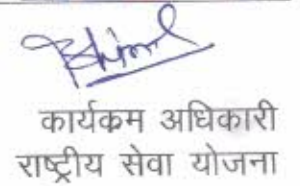 कार्यकम अधिकारी
राष्ट्रीय सेवा योजना